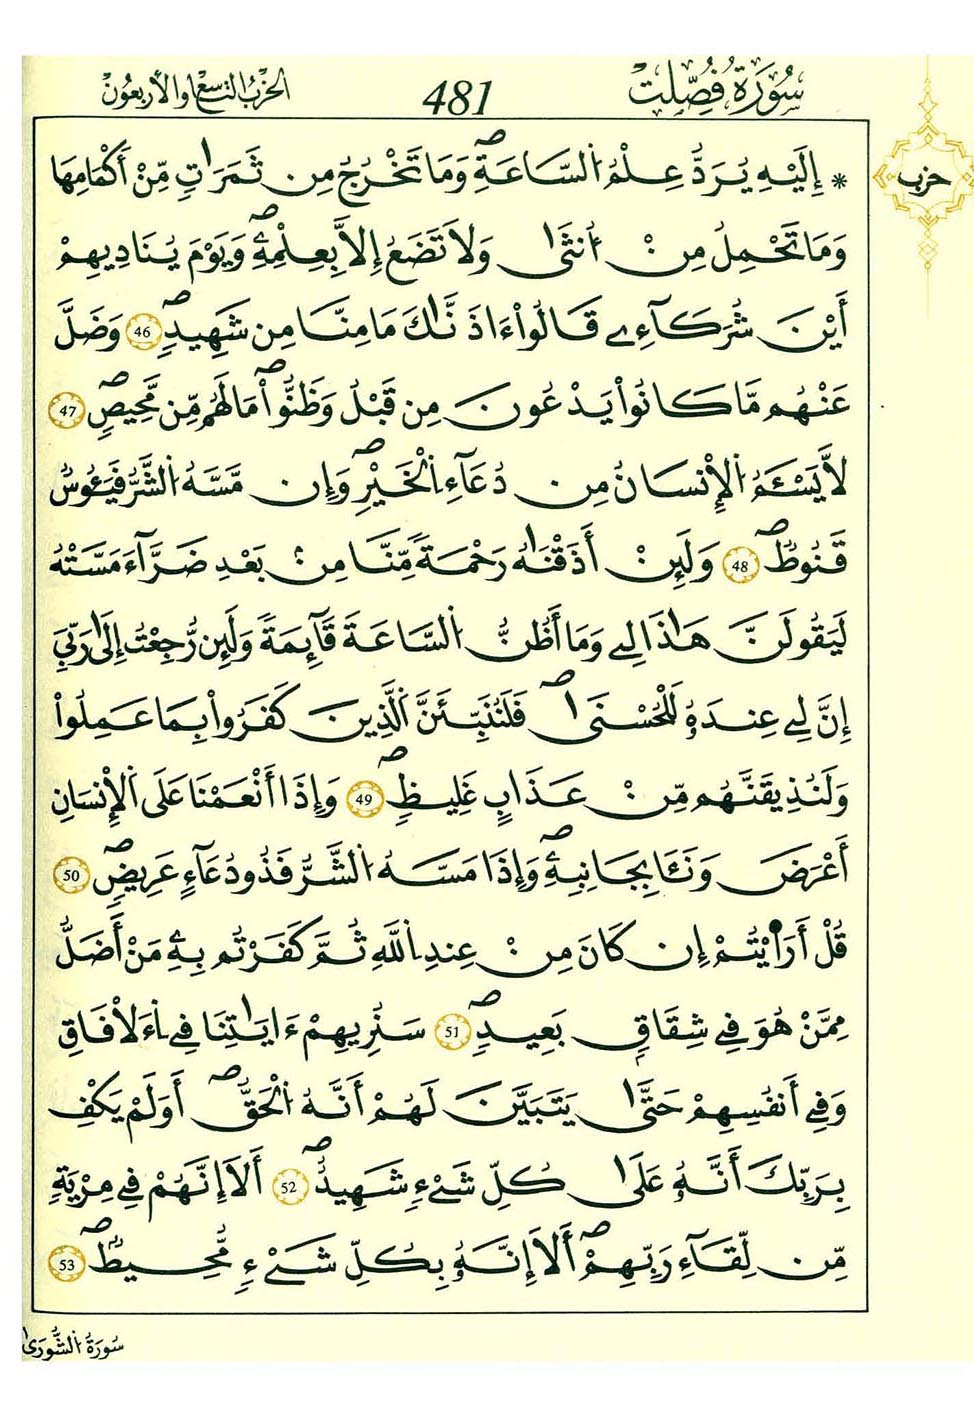 سُورَةُ فُصِّلَتْ 481 الحِزْبُ التاسع والأربعون
حزب
* إِلَيْهِ يُرَدُّ عِلْمُ اُ۬لسَّاعَةِۖ وَمَا تَخْرُجُ مِن ثَمَرَٰتٖ مِّنْ أَكْمَامِهَا
وَمَا تَحْمِلُ مِنْ أُنث۪ىٰ وَلَا تَضَعُ إِلَّا بِعِلْمِهِۦۖ وَيَوْمَ يُنَادِيهِمْ
أَيْنَ شُرَكَآءِے قَالُوٓاْ ءَاذَنَّٰكَ مَا مِنَّا مِن شَهِيدٖۖ 46 وَضَلَّ
عَنْهُم مَّا كَانُواْ يَدْعُونَ مِن قَبْلُ وَظَنُّواْۖ مَا لَهُم مِّن مَّحِيصٖۖ 47
لَّا يَسْـَٔمُ اُ۬لْإِنسَانُ مِن دُعَآءِ اِ۬لْخَيْرِۖ وَإِن مَّسَّهُ اُ۬لشَّرُّ فَيَـُٔوسٞ
قَنُوطٞۖ 48 وَلَئِنْ أَذَقْنَٰهُ رَحْمَةٗ مِّنَّا مِنۢ بَعْدِ ضَرَّآءَ مَسَّتْهُ
لَيَقُولَنَّ هَٰذَا لِے وَمَآ أَظُنُّ اُ۬لسَّاعَةَ قَآئِمَةٗ وَلَئِن رُّجِعْتُ إِلَىٰ رَبِّيَ
إِنَّ لِے عِندَهُۥ لَلْحُسْن۪ىٰۖ فَلَنُنَبِّئَنَّ اَ۬لذِينَ كَفَرُواْ بِمَا عَمِلُواْ
وَلَنُذِيقَنَّهُم مِّنْ عَذَابٍ غَلِيظٖۖ 49 وَإِذَآ أَنْعَمْنَا عَلَى اَ۬لْإِنسَٰنِ
أَعْرَضَ وَنَـَٔا بِجَانِبِهِۦۖ وَإِذَا مَسَّهُ اُ۬لشَّرُّ فَذُو دُعَآءٍ عَرِيضٖۖ 50
قُلْ أَرَٰٓيْتُمْ إِن كَانَ مِنْ عِندِ اِ۬للَّهِ ثُمَّ كَفَرْتُم بِهِۦ مَنْ أَضَلُّ
مِمَّنْ هُوَ فِے شِقَاقِۢ بَعِيدٖۖ 51 سَنُرِيهِمْ ءَايَٰتِنَا فِے اِ۬لَافَاقِ
وَفِےٓ أَنفُسِهِمْ حَتَّىٰ يَتَبَيَّنَ لَهُمْ أَنَّهُ اُ۬لْحَقُّۖ أَوَلَمْ يَكْفِ
بِرَبِّكَ أَنَّهُۥ عَلَىٰ كُلِّ شَےْءٖ شَهِيدٌۖ 52 أَلَآ إِنَّهُمْ فِے مِرْيَةٖ
مِّن لِّقَآءِ رَبِّهِمْۖ أَلَآ إِنَّهُۥ بِكُلِّ شَےْءٖ مُّحِيطٞۖ 53
سُورَةُ اُ۬لشُّورَىٰ